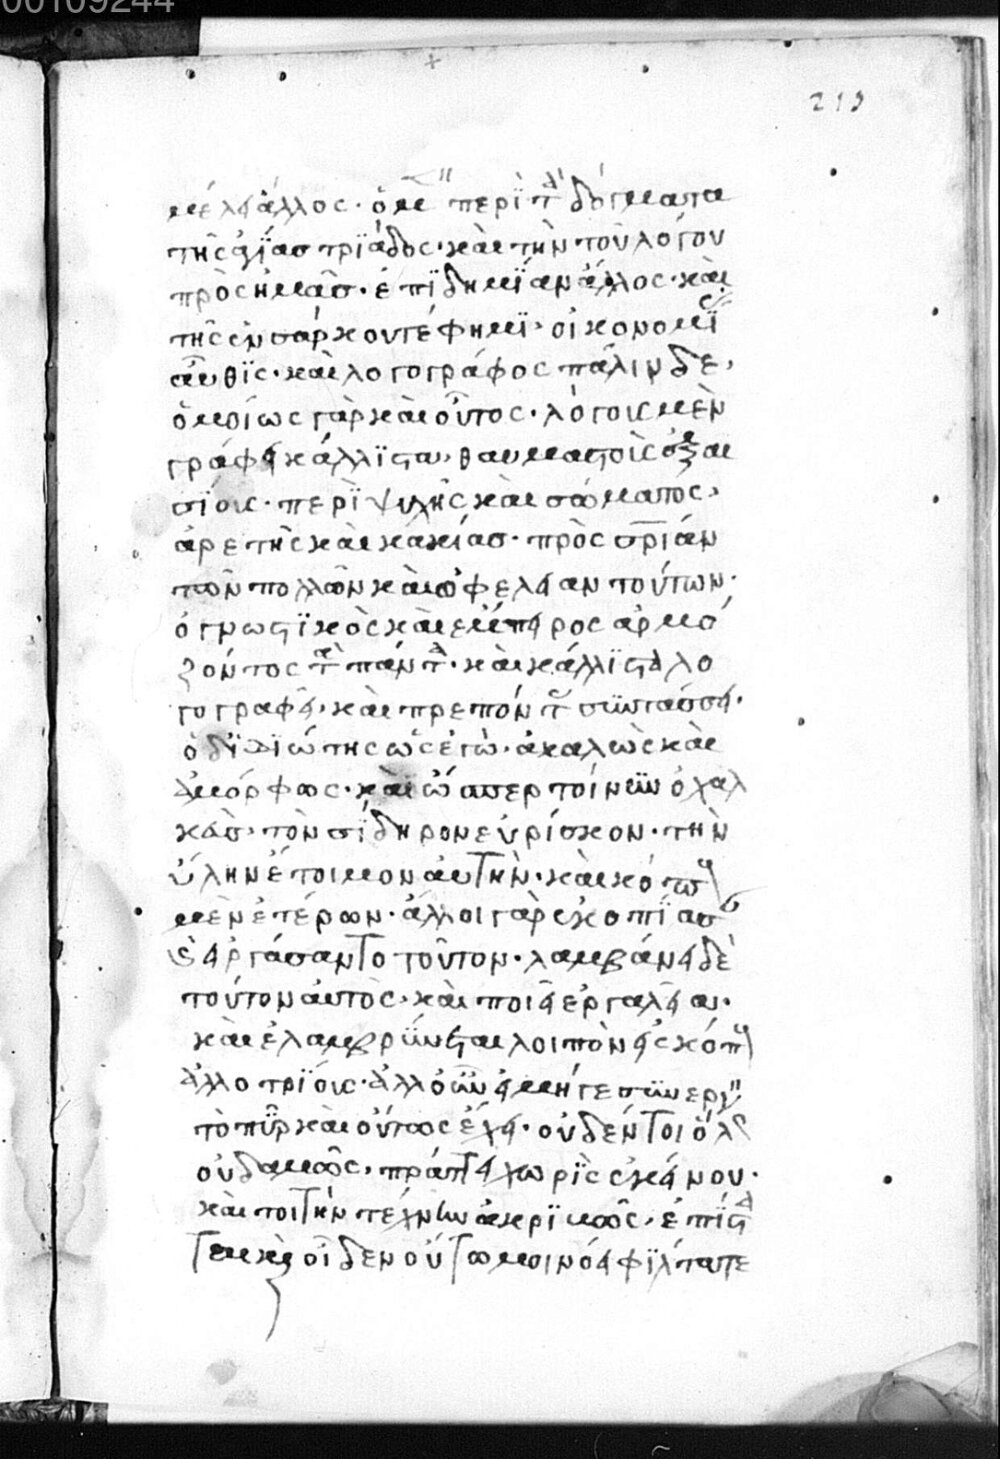 00109244
213
μέλει ἄλλος· ὁ μὲν περὶ τὰ δόγματα
τῆς ἁγίας τριάδος· καὶ τὴν τοῦ λόγου
πρὸς ἡμᾶς· ἐπιδημίαν ἄλλος· καὶ
τῆς ἐν σαρκὸς οἰκονομίας
αὖθις· καὶ λογογράφος πάλιν δὲ,
ὁμοίως γὰρ καὶ οὗτος· λόγοις μὲν
γράφει κάλλιστα· θαυμαστοῖς
σίοις· περὶ ψυχῆς καὶ σώματος,
ἀρετῆς καὶ κακίας· πρὸς σωτηρίαν
τῶν πολλῶν καὶ ὠφέλειαν τούτων·
ὁ γνωστικὸς καὶ ἔμπειρος ἁρμο
ζόντως τὰ πάντα· καὶ κάλλιστα λο
γογραφεῖ· καὶ πρεπόντως συντάσσει·
ὁ δὲ ἰδιώτης ὡς ἐγὼ· ἀκαλῶς καὶ
ἀμόρφως· καὶ ὥσπερ τοίνυν ὁ χαλ
κὰς· τὸν σίδηρον εὑρίσκον· τὴν
ὕλην ἕτοιμον αὐτὴν· καὶ κόπων
μὲν ἑτέρων· ἄλλοι γὰρ ἐκοπίασαν
εἰργάσαντο τοῦτον· λαμβάνει δὲ
τοῦτον αὐτὸς· καὶ ποιεῖ ἐργαλεῖα·
καὶ ἐλαμπρύνεται λοιπὸν εἰς κόπους
ἀλλοτρίοις· ἀλλ' οὖν εἰ μήγε συνεργεῖ
τὸ πῦρ καὶ οὕτως ἔχει· οὐδέν τοι ὅλως
οὐδαμῶς· πράττει χωρὶς ἐκείνου·
καίτοι τὴν τέχνην ἀκριβῶς· ἐπίστα
ται καὶ οἶδεν οὕτω μοι νόει φίλτατε